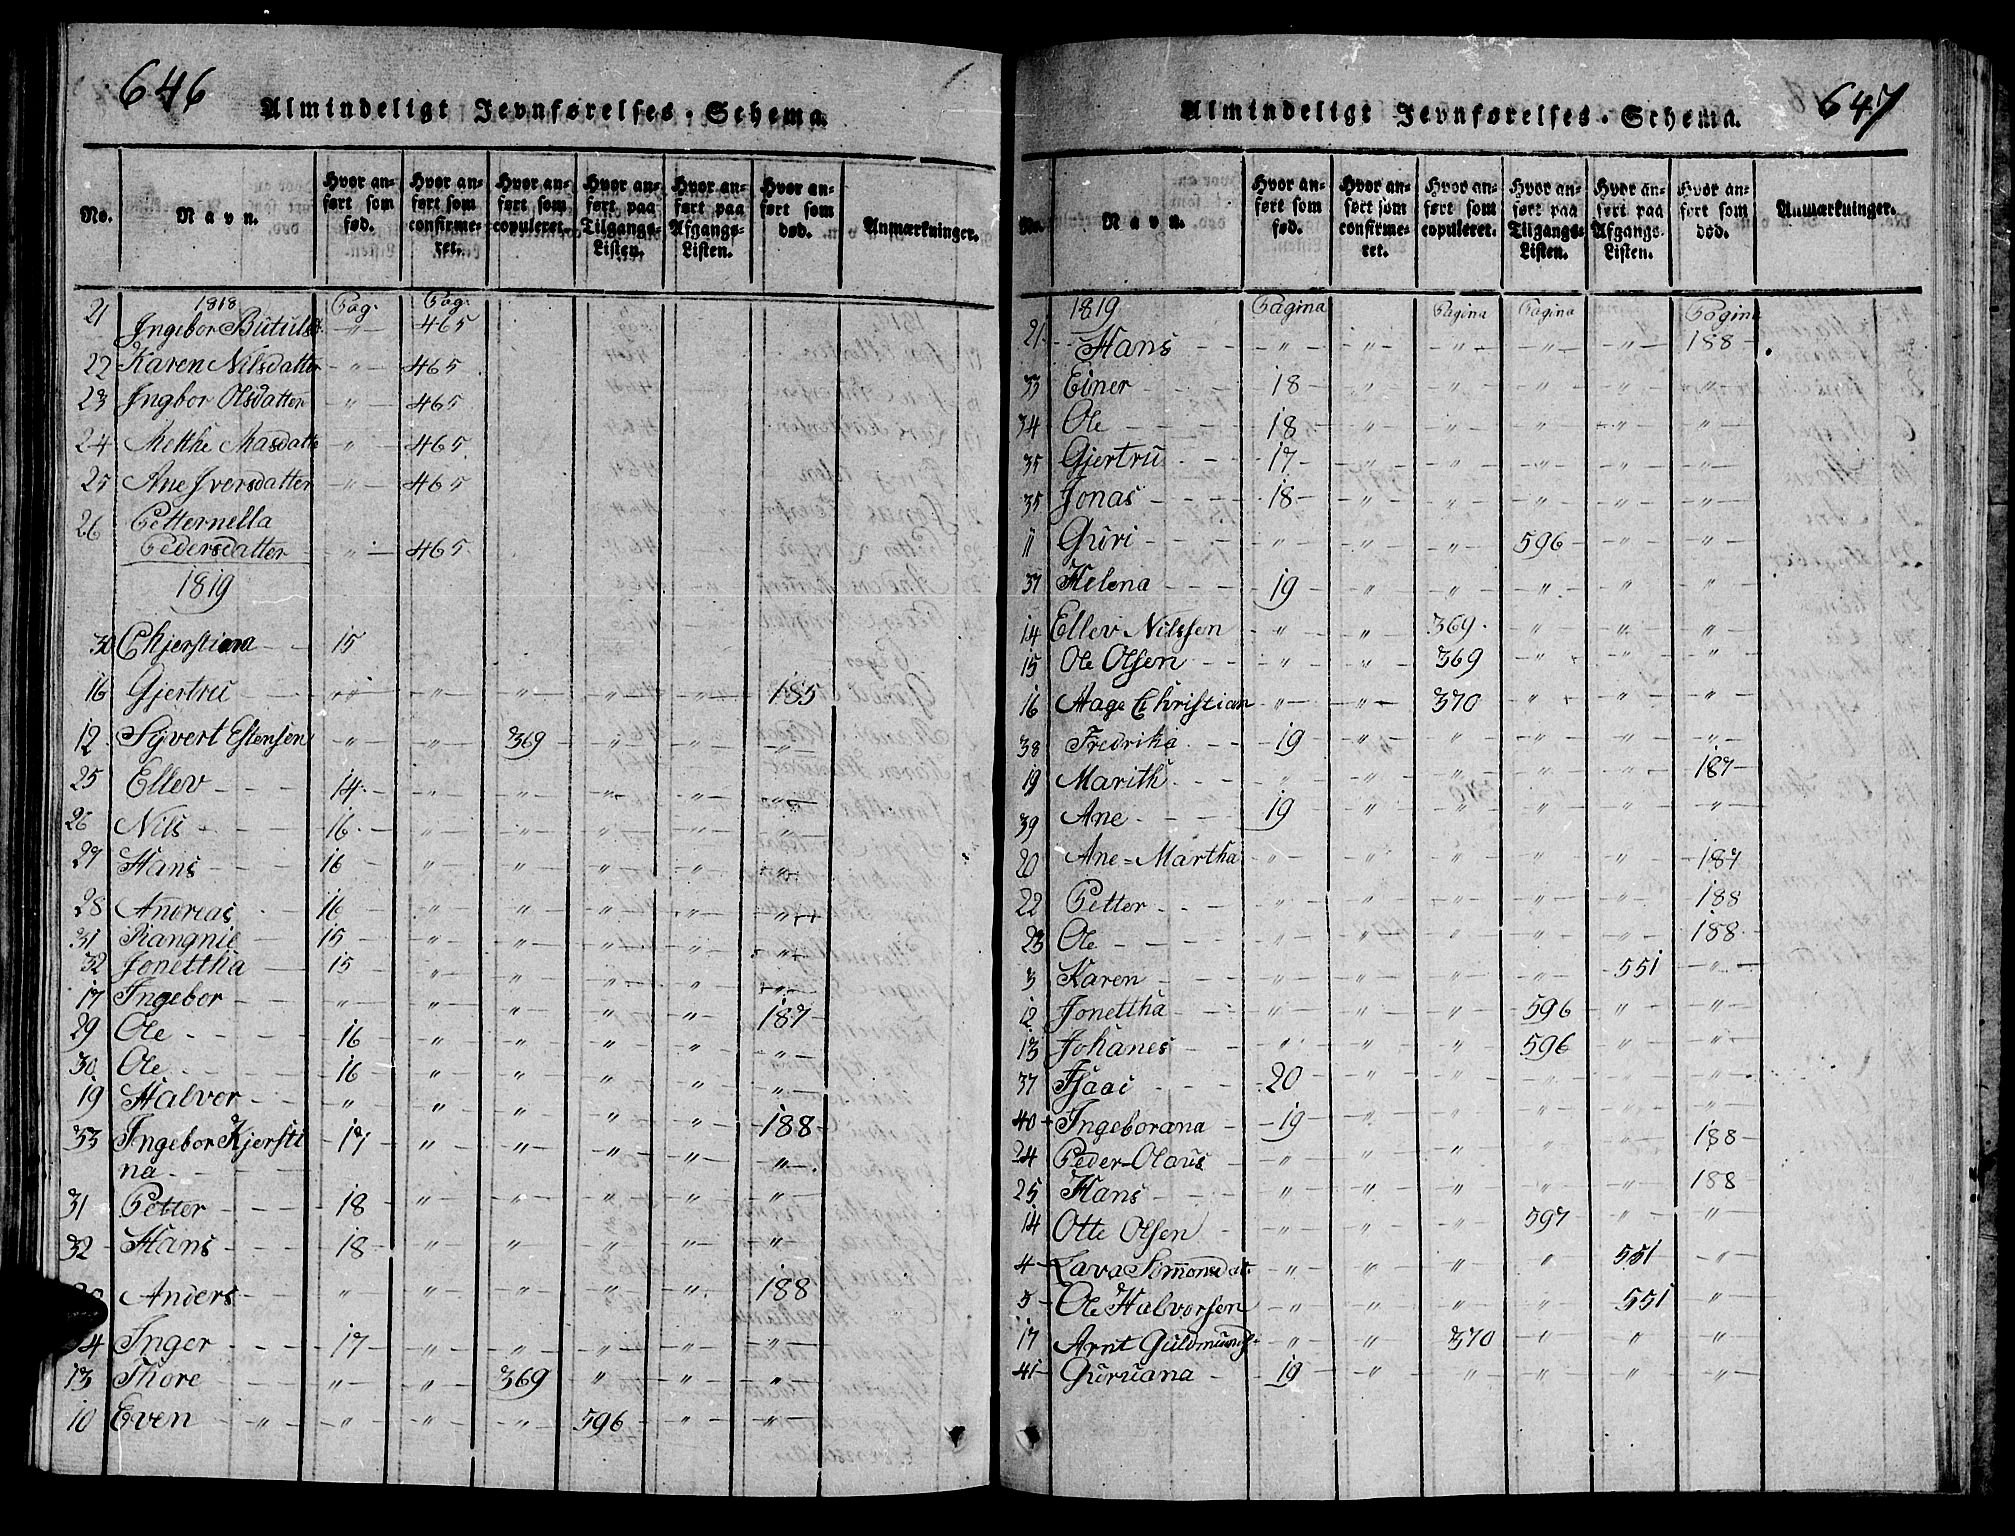 646
Almindeligt Jevnførelses-Schema.
No.
Navn.
Hvor anført som fød.
Hvor anført som confirmeret.
Hvor anført som copuleret.
Hvor anført paa Tilgangs-Listen.
Hvor anført paa Afgangs-Listen.
Hvor anført som død.
Anmærkninger.
1818 Pag. Pag.
21 Ingebor Butulsd. - " - 465
22 Karen Nilsdatter - " - 465.
23 Ingbor Olsdatter " 465
24 Mekkhe Masdatt " 465.
25 Ane Iversdatter - " - 465
26 Petternella
Pedersdatter " 465.
1819
30 Chjerstiana 15
16 Gjertru " " " " " 185
12 Syvert Estensen " " 369 " " "
25 Ellev 14 " " " " "
26 Nils 16 " " " " "
27 Hans 16 " " " " "
28 Andreas 16 " " " " "
31 Rangnil 15 " " " " "
32 Jonettha 15 " " " " "
17 Ingebor " " " " " 187
29 Ole 16 " " " " "
30 Ole 16 " " " " "
19 Halvor " " " " " 188
33 Ingebor Kjersti 17 " " " " "
na
31 Petter 18 " " " " "
32 Hans 18 " " " " "
Anders " " " " " 188
Inger 17 " " " " "
13 Thore " " 369 " " "
10 Even " " " 596 " "
647
Almindeligt Jevnførelses-Schema.
No.
Navn.
Hvor anført som fød.
Hvor anført som confirmeret.
Hvor anført som copuleret.
Hvor anført paa Tilgangs-Listen.
Hvor anført paa Afgangs-Listen.
Hvor anført som død.
Anmærkninger.
1819 Pagina Pagina Pagina Pagina
21 Hans " " " " " 188
33 Einer 18 " " " " "
34 Ole 18 " " " " "
35 Gjertru 17 " " " " "
35 Jonas 18 " " " " "
11 Guri " " " 596 " "
37 Helena 19 " " " " "
14 Ellev Nilssen " " 369 " " "
15 Ole Olsen " " 369 " " "
16 Aage Christian " " 370 " " "
38 Fredrika 19 " " " " "
19 Marith " " " " " 187
39 Ane 19 " " " " "
20 Ane-Martha " " " " " 187
22 Petter " " " " " 188
23 Ole " " " " " 188
3 Karen " " " " 551 "
12 Jonettha " " " 596 " "
13 Johanes " " " 596 " "
37 Isaac 20 " " " " "
40 Ingeborana 19 " " " " "
24 Peder-Olaus " " " " " 188
25 Hans " " " " " 188
14 Otte Olsen " " " 597 " "
4 Lava Simonsdat " " " " 551 "
5 Ole Halvorsen " " " " 551 "
17 Arnt Guldmunds " " 370 " " "
41 Guruana 19 " " " " "